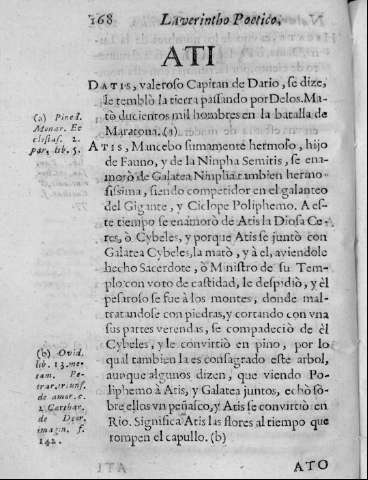 168 Laverintho Poetico.
ATI
DATIS, valeroso Capitan de Dario, se dize,
le temblò la tierra passando por Delos. Ma-
tò ducientos mil hombres en la batalla de
Maratona. (a)
ATIS, Mancebo sumamente hermoso, hijo
de Fauno, y de la Ninpha Semitis, se ena-
morò de Galatea Ninpha tambien hermo-
sissima, siendo competidor en el galanteo
del Gigante, y Ciclope Poliphemo. A es-
te tiempo se enamorò de Atis la Diosa Ce-
res, ò Cybeles, y porque Atis se juntò con
Galatea Cybeles, la matò, y à el, aviendole
hecho Sacerdote, ò Ministro de su Tem-
plo con voto de castidad, le despidiò, y èl
pesaroso se fue à los montes, donde mal-
tratandose con piedras, y cortando con vna
sus partes verendas, se compadeciò de èl
Cybeles, y le convirtiò en pino, por lo
qual tambien la es consagrado este arbol,
aunque algunos dizen, que viendo Po-
liphemo à Atis, y Galatea juntos, echò so-
bre ellos vn peñasco, y Atis se convirtiò en
Rio. Significa Atis las flores al tiempo que
rompen el capullo. (b)
ATO
(a) Pined.
Monar. Ec
clesias. 2.
par. lib. 5.
(b) Ovid.
lib. 13. me-
tam. Pe-
trar. triunf.
de amor. c.
2. Carthar.
de Deor.
imagin. f.
142.